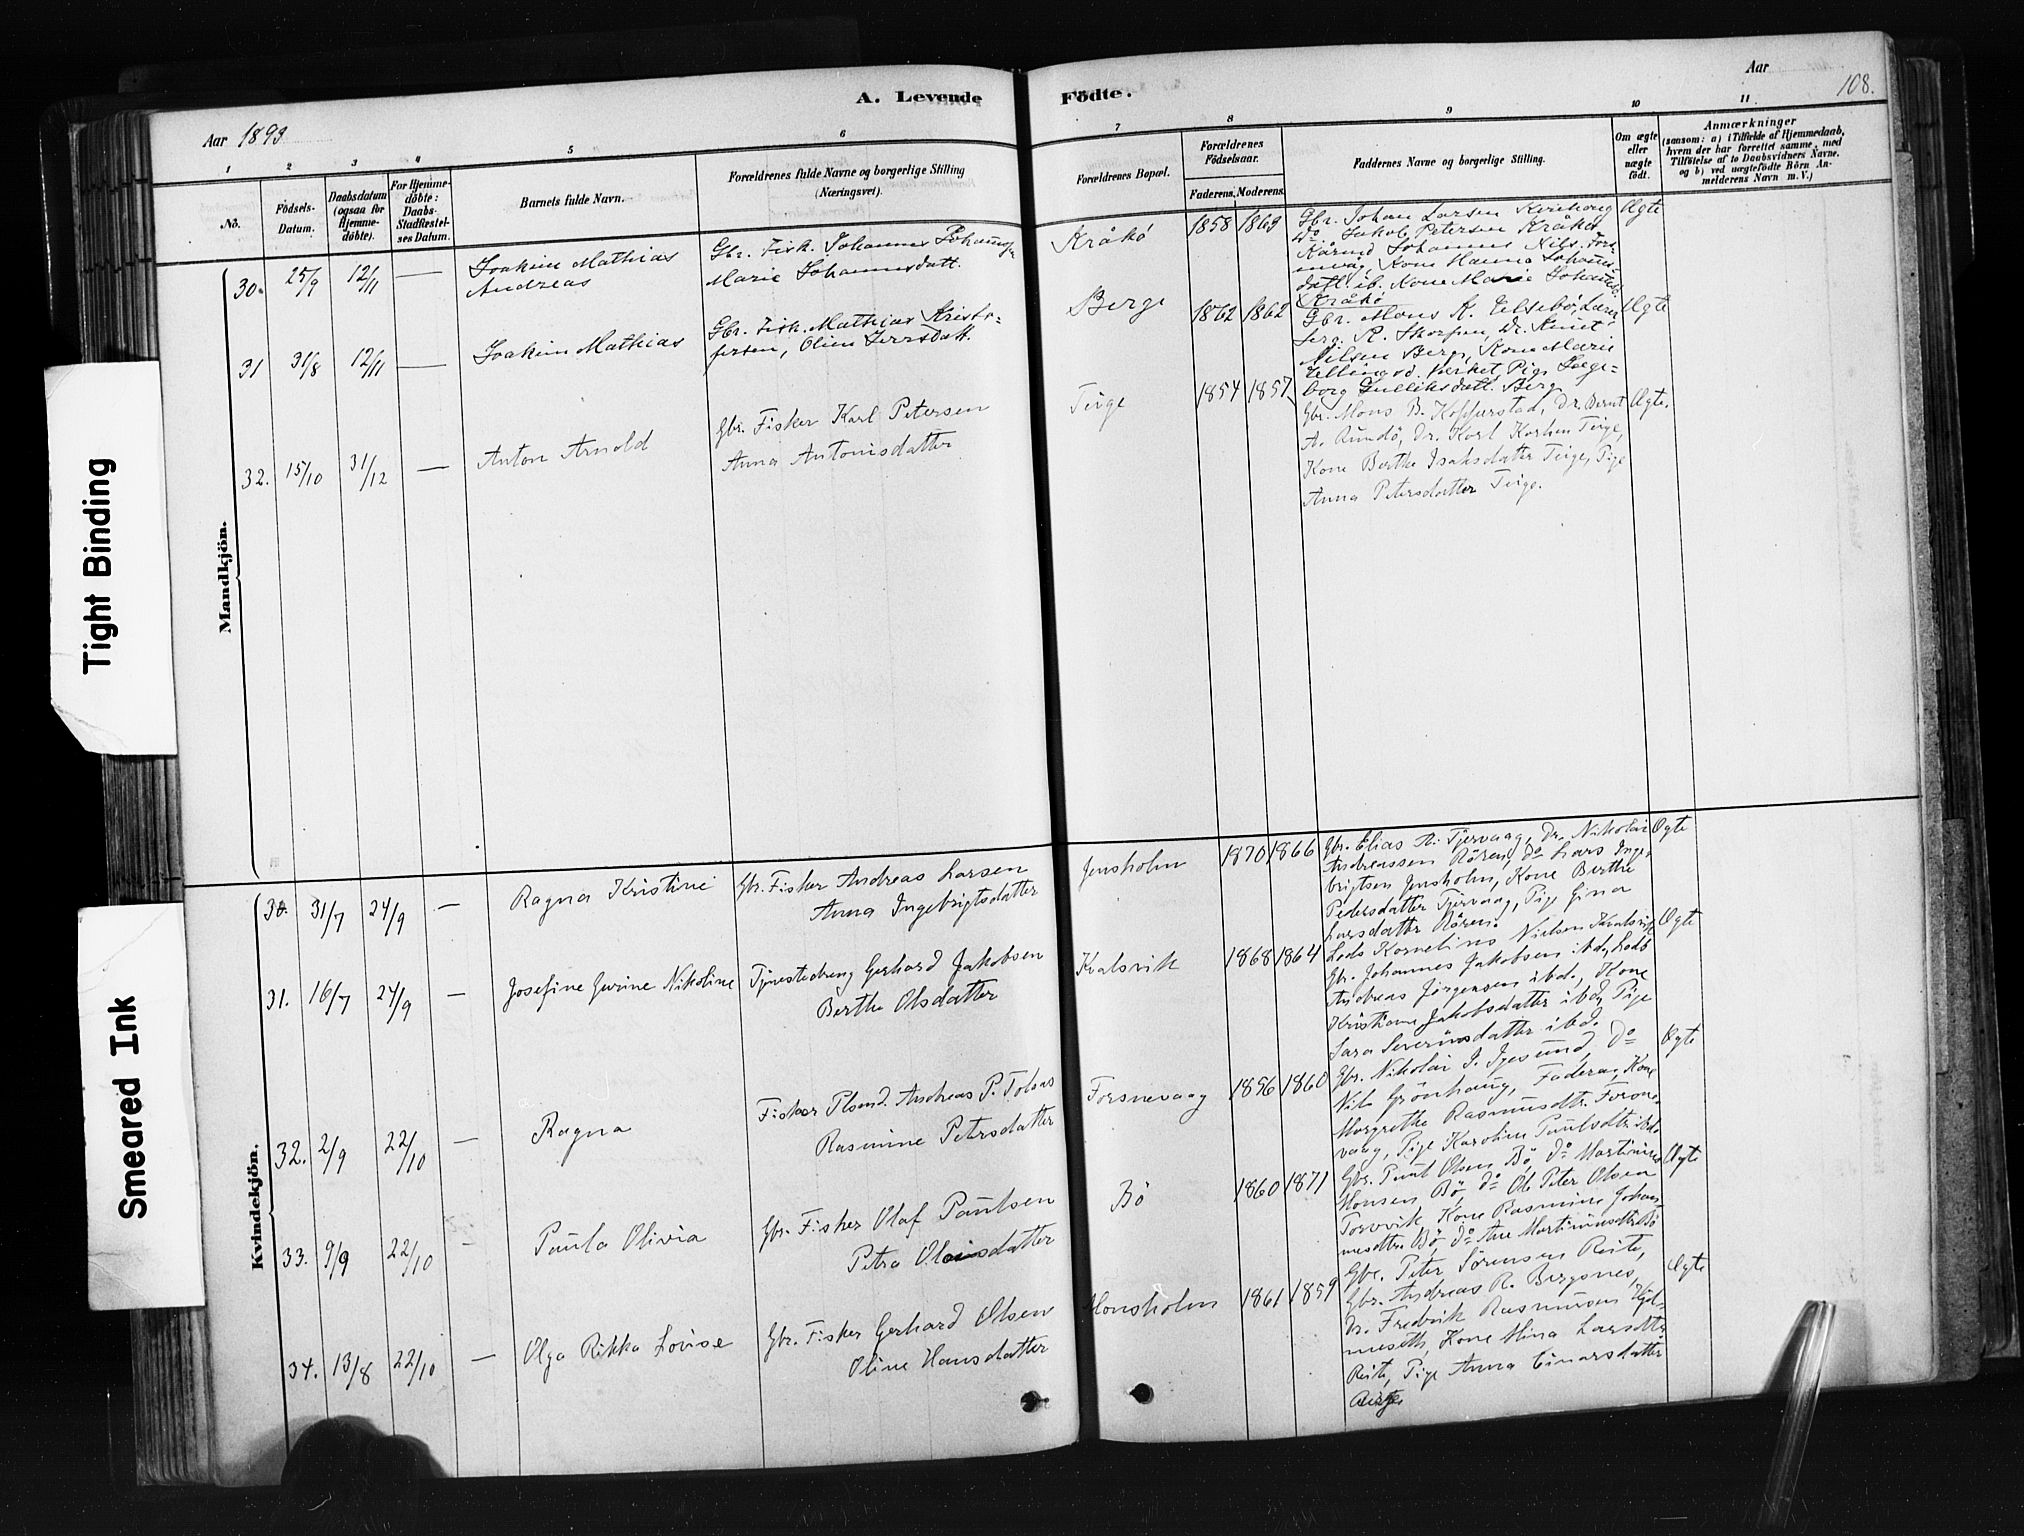 A. Levende Födte.
Aar 1893
Aar
108.
1 2 3 4 5 6 7 8 9 10 11
No.
Födsels-Datum.
Daabsdatum (ogsaa for Hjemme-döbte).
For Hjemme-döbte: Daabs-Stadfestel-ses Datum.
Barnets fulde Navn.
Forældrenes fulde Navne og borgerlige Stilling (Næringsvei).
Forældrenes Bopæl.
Forældrenes Födselsaar.
Faderens. Moderens.
Faddernes Navne og borgerlige Stilling.
Om ægte eller uægte födt.
Anmærkninger
(saasom: a) i Tilfælde af Hjemmedaab, hvem der har forrettet samme, med Tilföielse af to Daabsvidners Navne. og b) ved uægtefödte Börn An-melderens Navn m. V.)
Mandkjön.
30. 25/9 12/11 —
Joakim Mathias
Andreas
Gbr. Fisk. Johannes
Marie Johannesdatt.
Kråkö
1858 1869
Gbr. Johan Larsen
Do Jakob Petersen Kråkö
Johannes Nils.
Kone Hanna
datt. ib. Kone Marie
Kråkö
Ægte
31 31/8 12/11 —
Joakim Mathias
Gbr. Fisk. Mathias Kristo=
fersen, Oline
Berge
1862 1862
Gbr. Mons K.
Serg. R. Skorpen, Dr. Knut
Nilsen Berge, Kone Marie
Pige Inge=
borg Berge
Ægte
32. 15/10 31/12 —
Anton Arnold
Gbr. Fisker Karl Petersen
Anna Antonisdatter
Teige
1854 1857
Gbr. Mons B. Kopperstad, Dr. Bernt
A. Rundö, Dr. Karl Karlsen Teige,
Kone Berthe Isaksdatter Teige, Pige
Anna Petersdatter Teige.
Ægte.
Kvindekjön.
30. 31/7 24/9 —
Ragna Kristine
Gbr. Fisker Andreas Larsen
Anna Ingebrigtsdatter
Jensholm
1870 1866
Gbr. Elias R. Tjervaag, Dr. Nikolai
Andreassen Rören, do Lars Inge-
brigtsen Jensholm, Kone Berthe
Pedersdatter Tjervaag, Pige Gina
Larsdatter Rören.
Ægte
31. 16/7 24/9 —
Josefine Gurine Nikoline
Tjenestedreng Gerhard Jakobsen
Berthe Olsdatter
Kvalsvik
1868 1864
Lods Kornelius Nielsen Kvalsvik
Gbr. Johannes Jakobsen ibd, Lods
Andreas Jörgensen ibd., Kone
Kristiane Jakobsdatter ibd, Pige
Sara Severinsdatter ibd.
Ægte
32. 2/9 22/10 —
Ragna
Fisker Andreas P. Tolaas
Rasmine Petersdatter
Forsnevaag
1856 1860
Gbr. Nikolai J. Igesund, do
Nils Grönhaug, Faderen, Kone
Margrethe Rasmusdtr. Forsne-
vaag, Pige Karoline Paulsdtr. ibd.
Ægte
33. 9/9 22/10 —
Paula Olivia
Gbr. Fisker Olaf Paulsen
Petra
Bö
1860 1871
Gbr. Paul Olsen Bö, do Martinus
Monsen Bö, do Ole Peter Olsen
Torvik, Kone Rasmine Johan
nesdtr. Bö, do Ane Martinusdtr. Bö
Ægte
34. 13/8 22/10 —
Olga Rikka Lovise
Gbr. Fisker Gerhard Olsen
Oline Hansdatter
Monsholm
1861 1859
Gbr. Peter Sörensen Reite,
Gbr. Andreas R. Bergsnes,
Dr. Fredrik Rasmussen
Kone Mina Larsdtr.
Reite, Pige Anna Einarsdatter
Ægte
Tight Binding
Smeared Ink